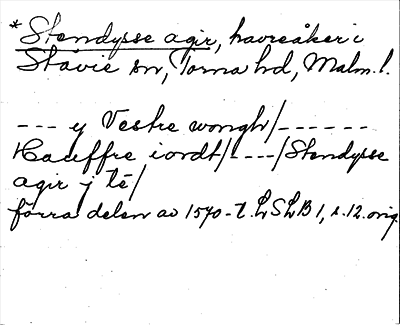 *Stendysse agir, havreåker i
Stävie sn, Torna hd, Malm. l.
--- y Vestre wongh/------
Hauffre iordt/----/Stendysse
agir j tē/
förra delen av 1570-t. LSLB 1, s. 12. orig.